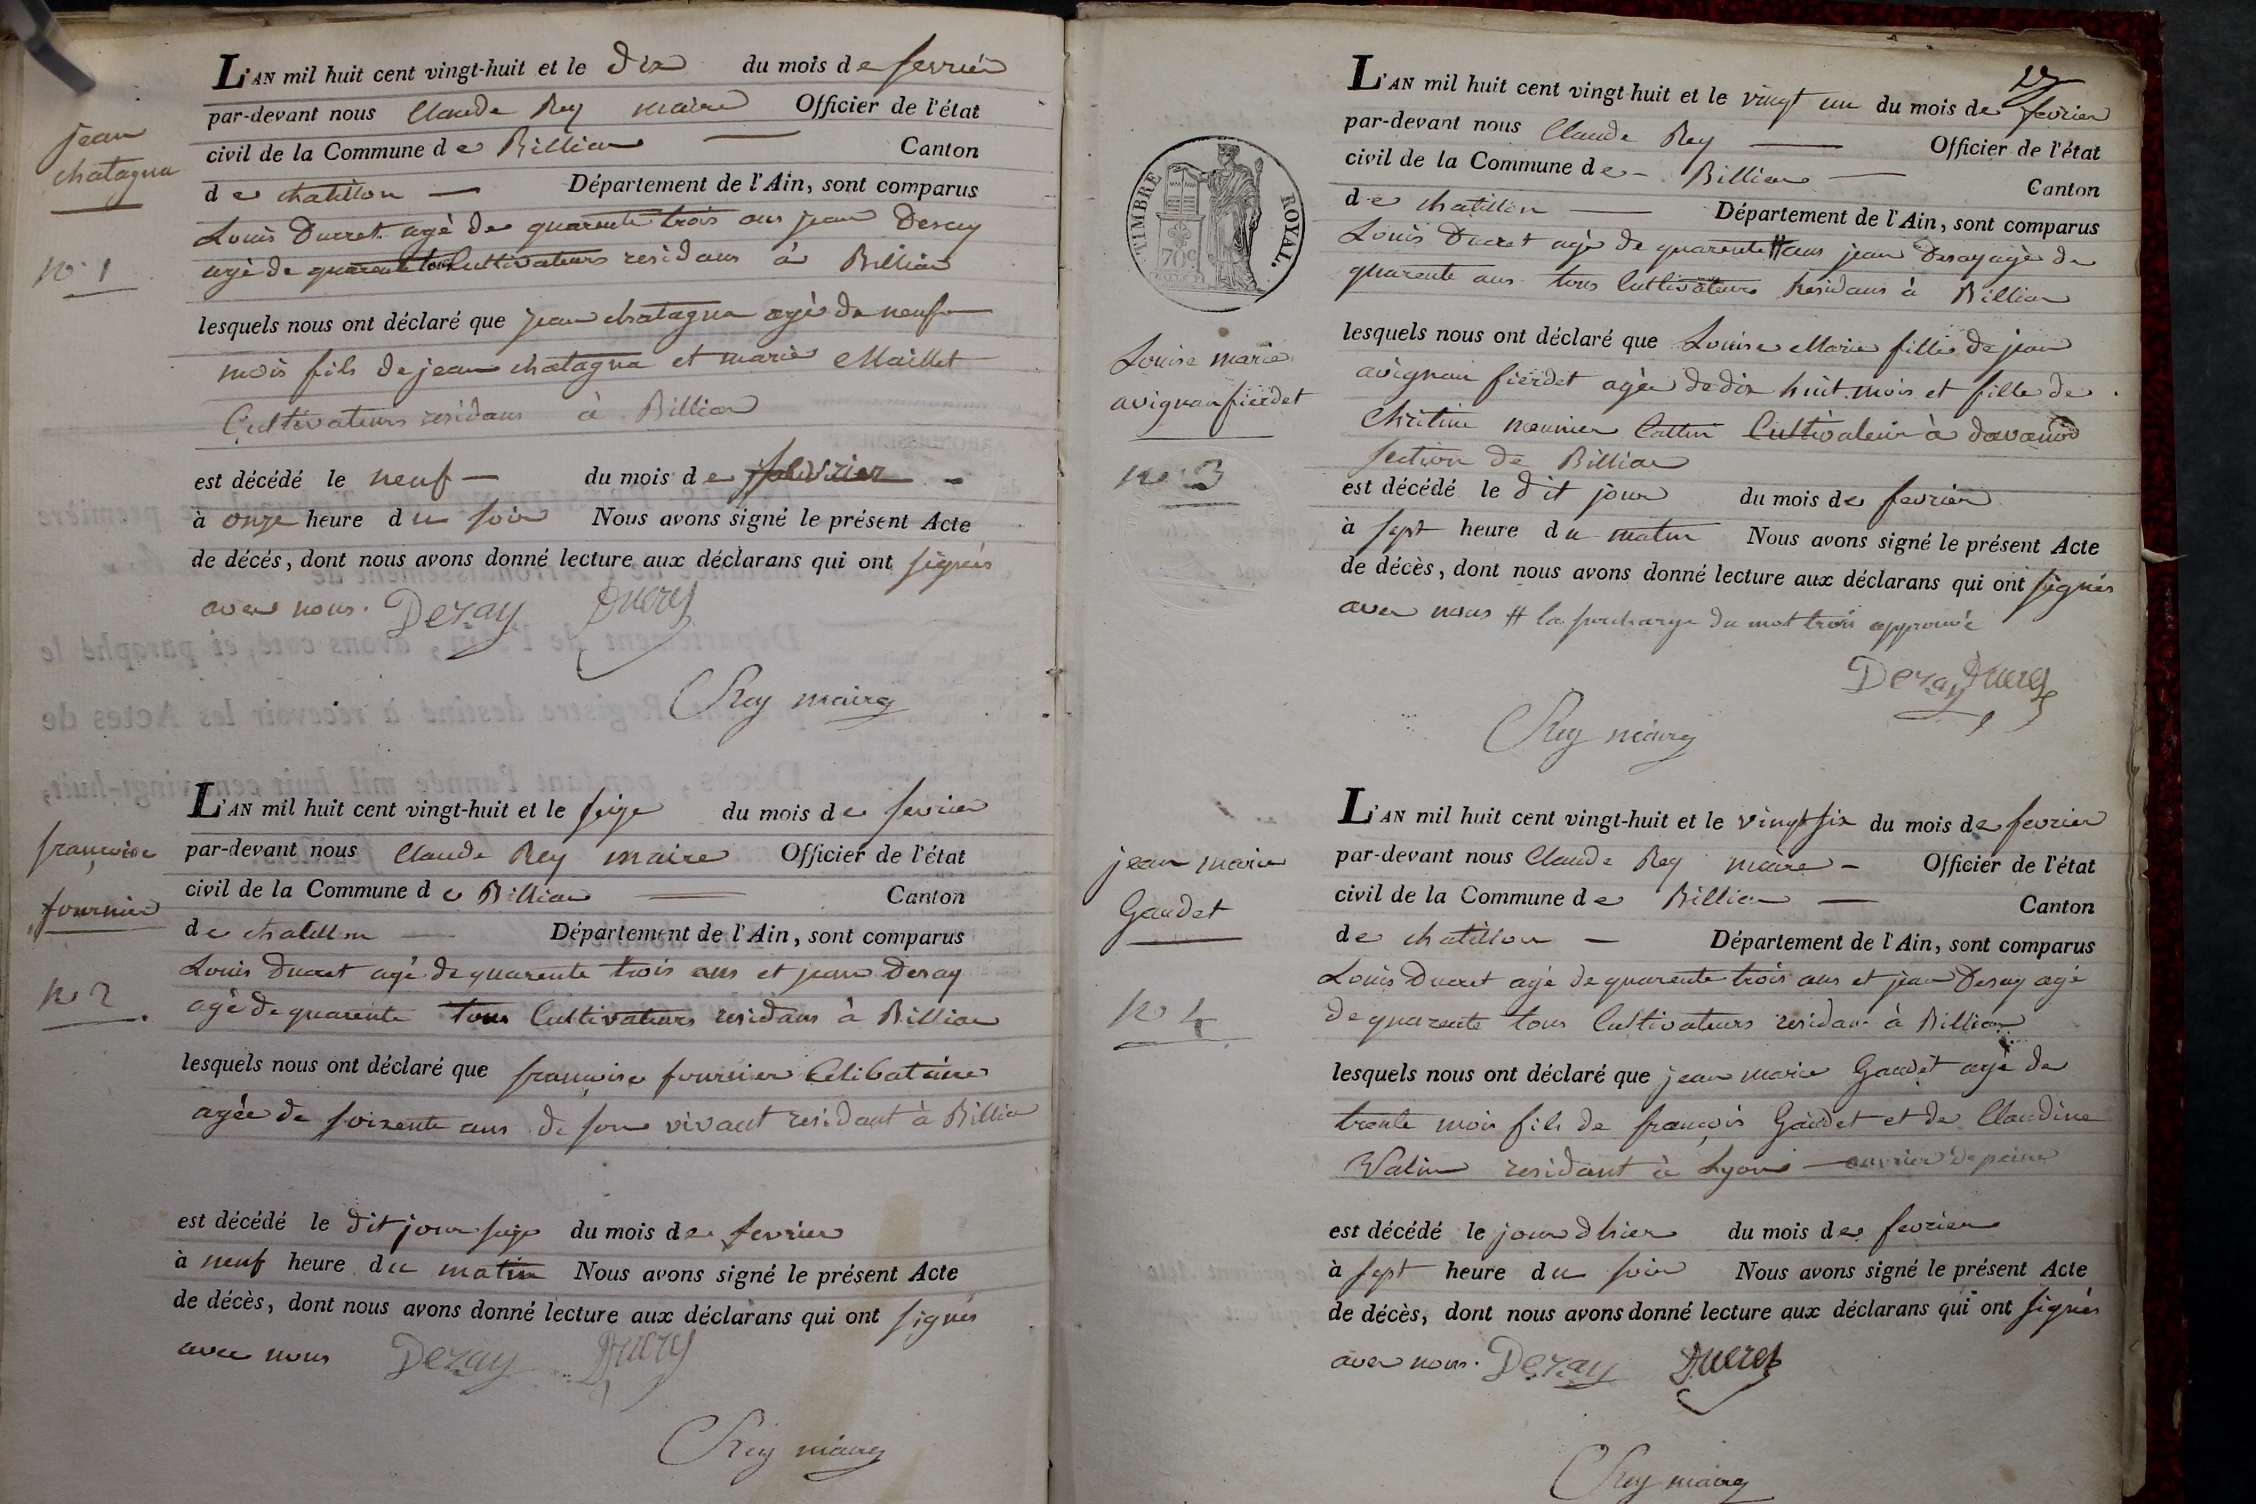 L'AN mil huit cent vingt-huit et le dix du mois de fevrier
par-devant nous Claude Rey maire Officier de l'état
civil de la Commune de Billiat Canton
de chatillon Département de l'Ain, sont comparus
Louis Ducret agé de quarente trois ans jean Desay
agé de quarente tous Cultivateurs residans à Billiat
lesquels nous ont déclaré que jean chatagna agé de neuf
mois fils de jean chatagna et marie Maillet
Cultivateurs residans à Billiat
est décédé le neuf du mois de fevrier
à onze heure du soir Nous avons signé le présent Acte
de décés, dont nous avons donné lecture aux déclarans qui ont signés
avec nous. Dezay Ducret
Rey maire
jean
chatagna
No 1
L'AN mil huit cent vingt-huit et le seize du mois de fevrier
par-devant nous Claude Rey maire Officier de l'état
civil de la Commune de Billiat Canton
de chatillon Département de l'Ain, sont comparus
Louis Ducret agé de quarente trois ans et jean Desay
agé de quarente tous Cultivateurs residans à Billiat
lesquels nous ont déclaré que françoise fournier Celibataire
agée de soixente ans de son vivant residant à Billiat
est décédé le dit jour seize du mois de fevrier
à neuf heure du matin Nous avons signé le présent Acte
de décès, dont nous avons donné lecture aux déclarans qui ont signés
avec nous Dezay Ducret
Rey maire
françoise
fournier
No 2
L'AN mil huit cent vingt-huit et le vingt un du mois de fevrier
par-devant nous Claude Rey Officier de l'état
civil de la Commune de Billiat Canton
de chatillon Département de l'Ain, sont comparus
Louis Ducret agé de quarente # ans jean Desay agé de
quarente ans tous Cultivateurs Residans à Billiat
lesquels nous ont déclaré que Louise Marie fille de jean
avignan fierdet agée de dix huit mois et fille de
Chritine meunier Cultivateur à
section de Billiat
est décédé le dit jour du mois de fevrier
à sept heure du matin Nous avons signé le présent Acte
de décès, dont nous avons donné lecture aux déclarans qui ont signés
avec nous # la surcharge du mot trois approuvée
Dezay Ducret
Rey maire
TIMBRE ROYAL.
70c
Louise marie
avignan fierdet
No 3
L'AN mil huit cent vingt-huit et le vingt six du mois de fevrier
par-devant nous Claude Rey maire Officier de l'état
civil de la Commune de Billiat Canton
de chatillon Département de l'Ain, sont comparus
Louis Ducret agé de quarente trois ans et jean Desay agé
de quarente tous Cultivateurs residans à Billiat
lesquels nous ont déclaré que jean marie Gaudet agé de
trente mois fils de françois Gaudet et de Claudine
residant à Lyon ouvrier de peine
est décédé le jour d'hier du mois de fevrier
à sept heure du soir Nous avons signé le présent Acte
de décès, dont nous avons donné lecture aux déclarans qui ont signés
avec nous. Dezay Ducret
Rey maire
jean marie
Gaudet
No 4